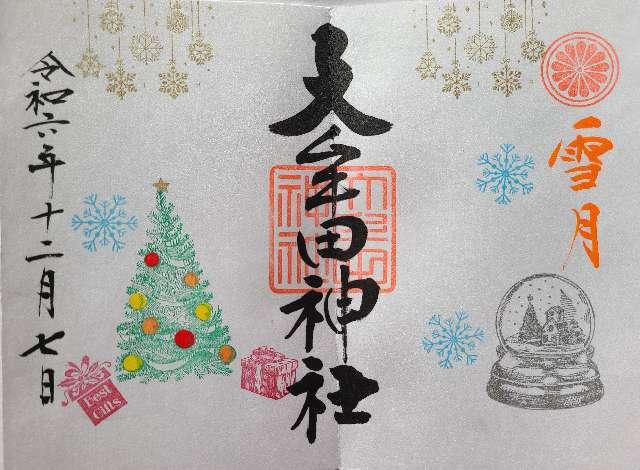 雪月
大牟田神社
令和六年十二月七日
Best
Gifts